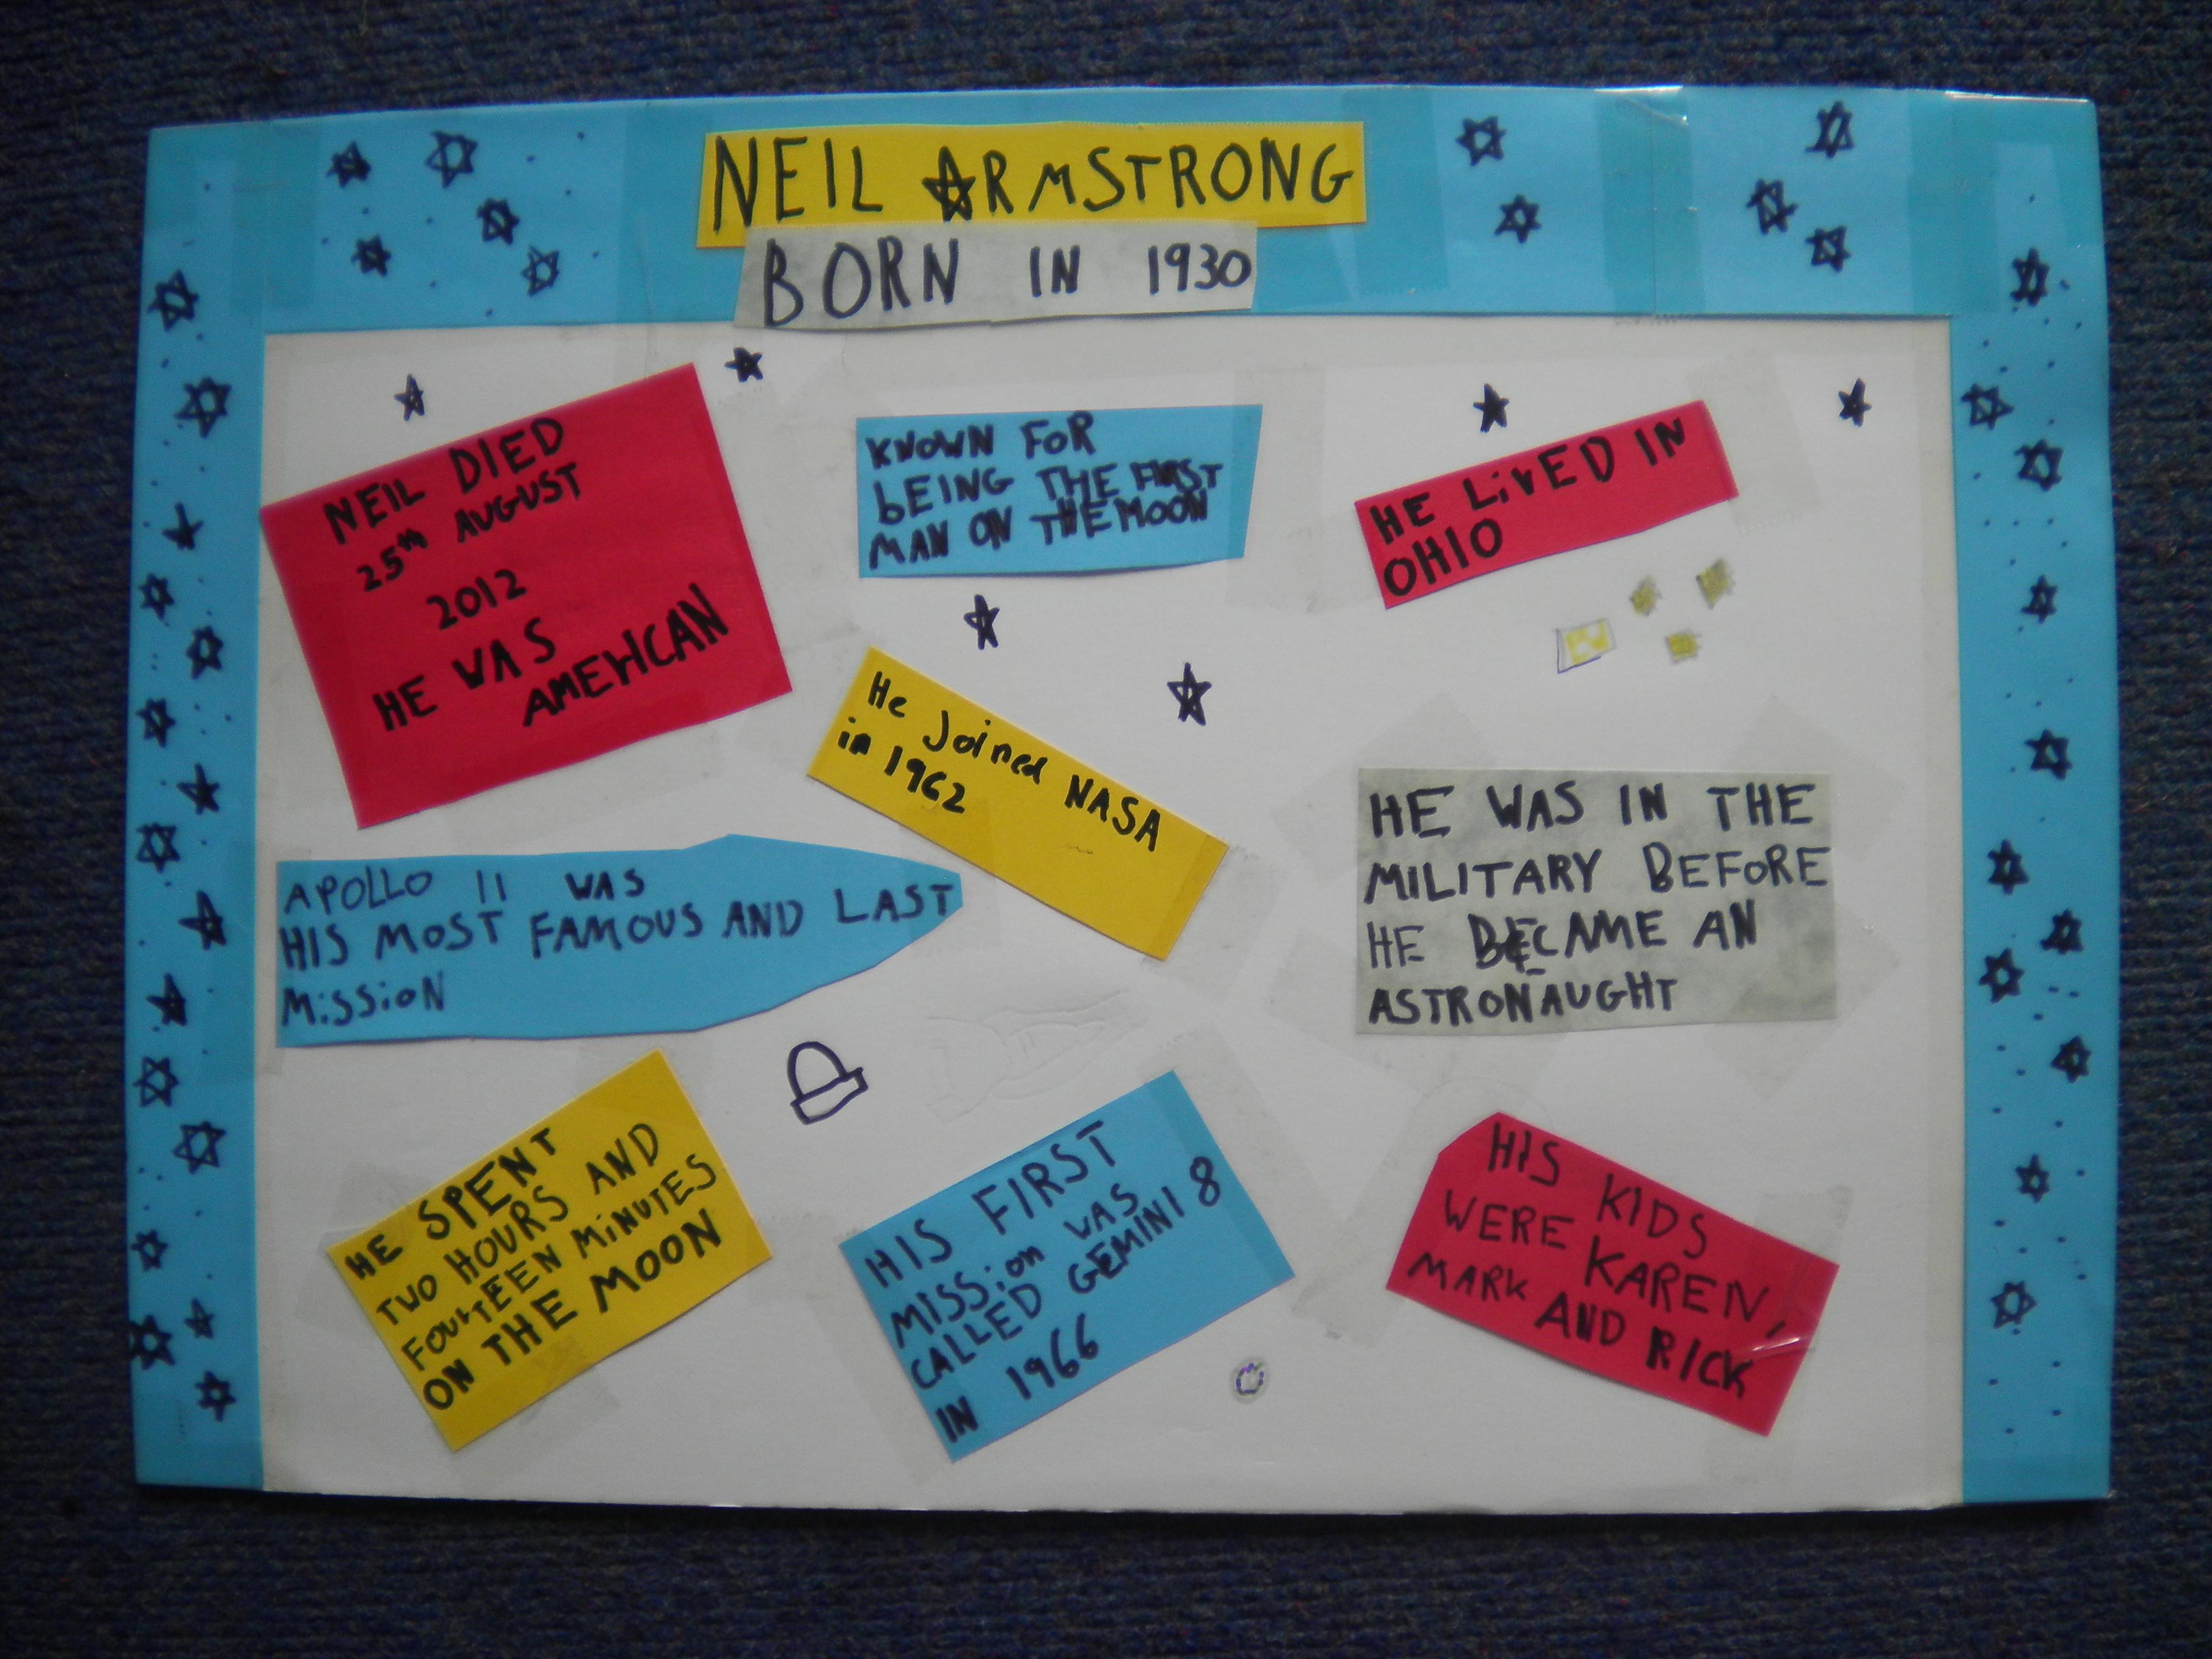 NEIL ARMSTRONG
BORN IN 1930
NEIL DIED
25th AUGUST
2012
HE WAS
AMERICAN
KNOWN FOR
bEING THE FIRST
MAN ON THE MOON
HE LiVED IN
OHIO
He Joined NASA
in 1962
APOLLO 11 WAS
HIS MOST FAMOUS AND LAST
MiSSiON
HE WAS IN THE
MILITARY BEFORE
HE BECAME AN
ASTRONAUGHT
HE SPENT
TWO HOURS AND
FOURTEEN MiNUTES
ON THE MOON
HIS FIRST
MISSion WAS
CALLED GEMINI 8
IN 1966
HIS KIDS
WERE KAREN,
MARK AND RICK